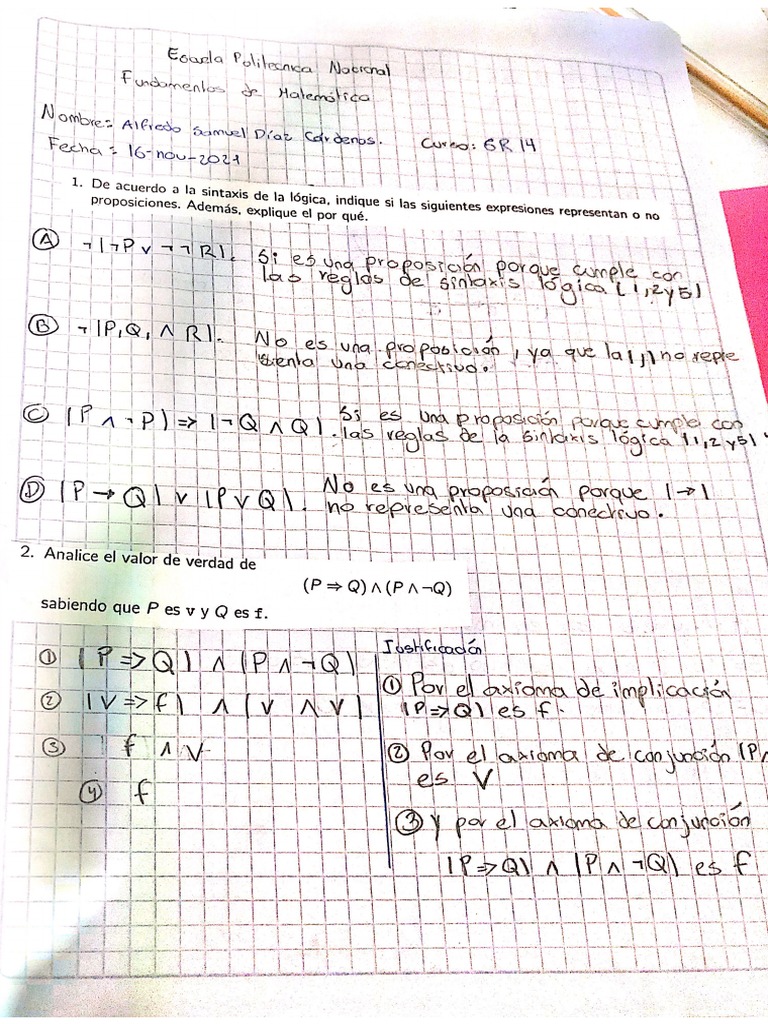 Escuela Politecnica Nacional
Fundamentos de Matemática
Nombre: Alfredo Samuel Díaz Cárdenas. Curso: GR 14
Fecha: 16-nov-2021
1. De acuerdo a la sintaxis de la lógica, indique si las siguientes expresiones representan o no
proposiciones. Además, explique el por qué.
A ¬(¬P ∨ ¬¬R). Si es una proposición porque cumple con
las reglas de sintaxis lógica (1,2y5)
B ¬(P,Q, ∧ R). No es una proposición, ya que la (,) no repre
senta una conectivo.
C (P ∧ ¬P) => (¬Q ∧ Q). Si es una proposición porque cumple con
las reglas de la sintaxis lógica (1,2y5)
D (P → Q) ∨ (P ∨ Q). No es una proposición porque (→)
no representa una conectivo.
2. Analice el valor de verdad de
(P ⇒ Q) ∧ (P ∧ ¬Q)
sabiendo que P es v y Q es f.
Justificación
① (P => Q) ∧ (P ∧ ¬Q)
② (V => f) ∧ (V ∧ V)
③ f ∧ V
④ f
① Por el axioma de implicación
(P=>Q) es f.
② Por el axioma de conjunción (P∧
es V
③ Y por el axioma de conjunción
(P=>Q) ∧ (P ∧ ¬Q) es f